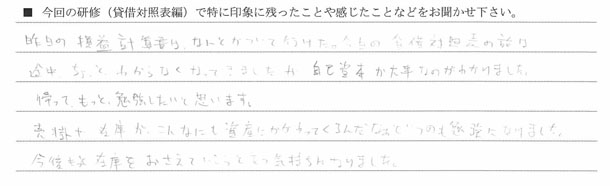 ■ 今回の研修（貸借対照表編）で特に印象に残ったことや感じたことなどをお聞かせ下さい。
昨日の損益計算書は、なんとかついて行けた。今日の貸借対照表の話は
途中、ちょっと、わからなくなってきましたが自己資本が大事なのがわかりました。
帰って、もっと、勉強したいと思います。
売掛や在庫が、こんなにも資産にかかわってくるんだなぁと いつも勉強になりました。
今後は 在庫をおさえて いこうという気持ちになりました。